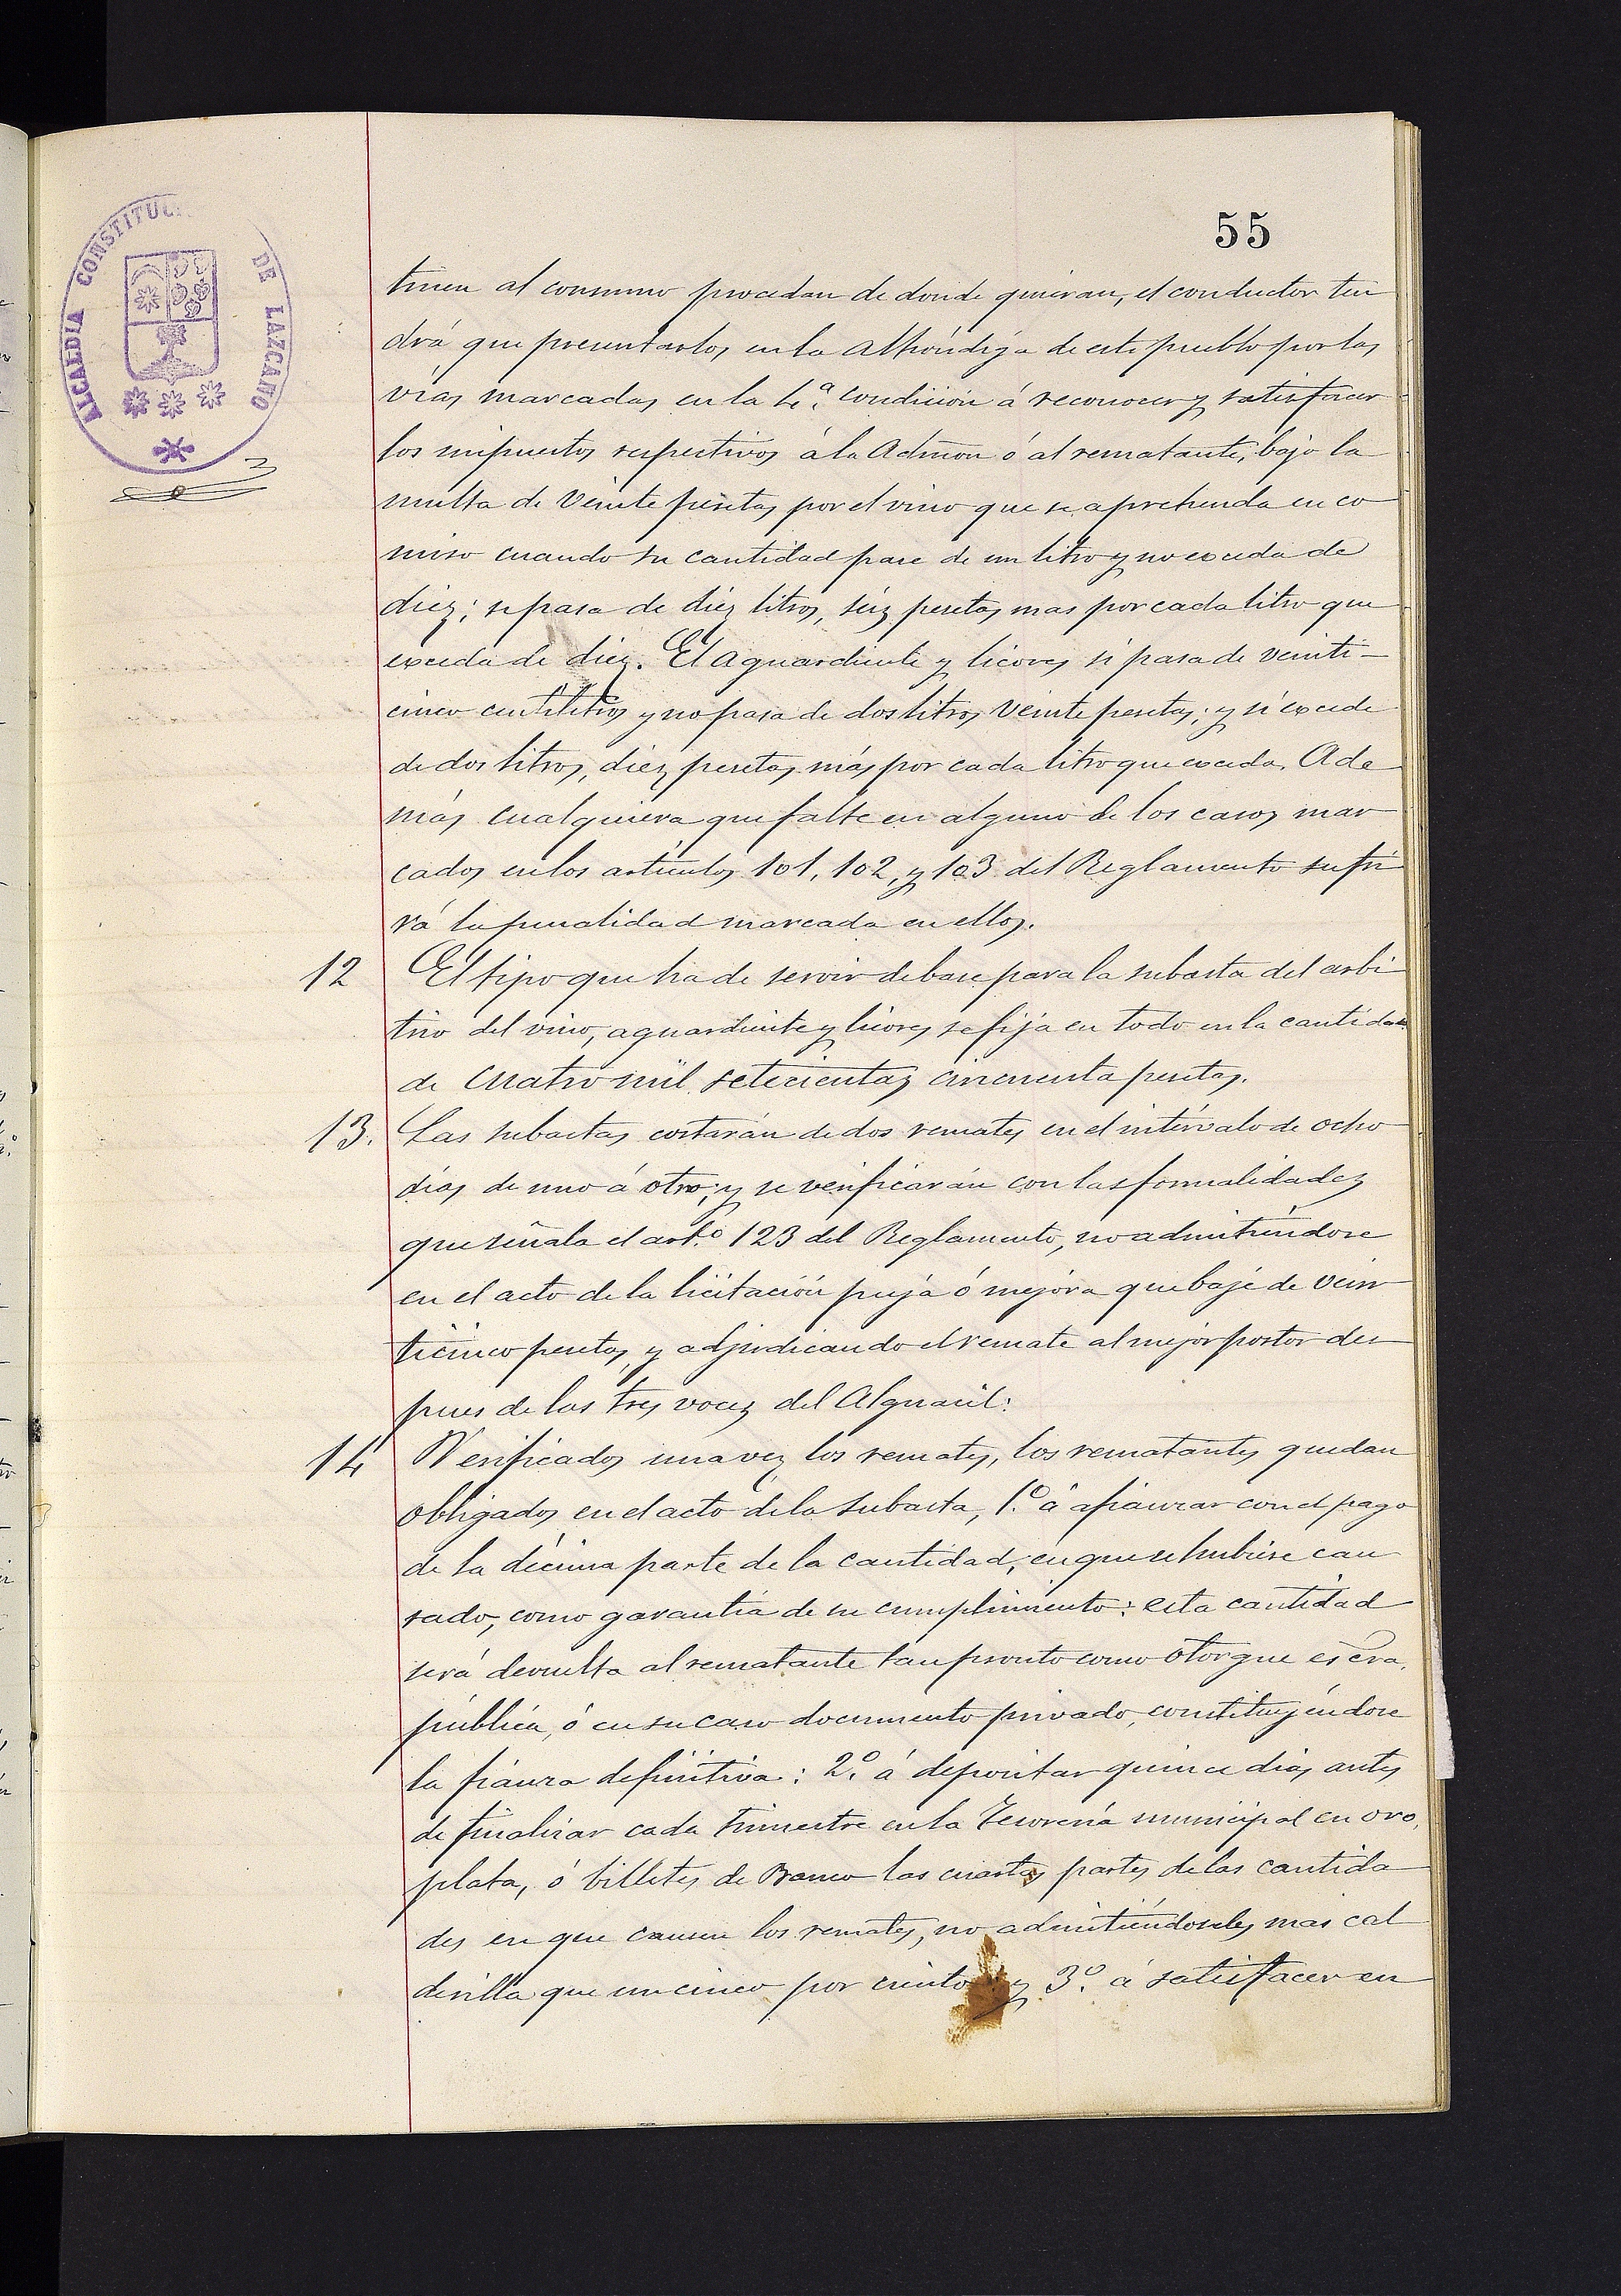 55
ALCALDIA CONSTITUC DE LAZCANO
tinen al consumo procedan de donde quieran, el conductor ten
drá que presentarlos en la Alhóndiga de este pueblo por las
vías marcadas en la 4.ª condición á reconocer y satisfacer
los impuestos respectivos á la Admon ó al rematante, bajo la
multa de Veinte pesetas por el vino que se aprehenda en co
miso cuando su cantidad pase de un litro y no exceda de
diez; si pasa de diez litros, seis pesetas mas por cada litro que
exceda de diez. El Aguardiente y licores si pasa de veinti-
cinco centilitros y no pasa de dos litros Veinte pesetas; y si excede
de dos litros, diez pesetas más por cada litro que exceda. Ade
más cualquiera que falte en alguno de los casos mar
cados en los artículos 101, 102, y 103 del Reglamento sufri
rá la penalidad marcada en ellos.
12 El tipo que ha de servir de base para la subasta del arbi
trio del vino, aguardiente y licores se fija en todo en la cantidad
de Cuatro mil setecientas cincuenta pesetas.
13. Las subastas costarán de dos remates en el intérvalo de ocho
días de uno á otro; y se verificarán con las formalidades
que señala el art.º 123 del Reglamento, no admitiéndose
en el acto de la licitación puja ó mejora que baje de vein
ticinco pesetas, y adjudicando el remate al mejor postor des
pues de las tres voces del Alguacil.
14 Verificados una vez los remates, los rematantes quedan
obligados en el acto de la subasta, 1.º á afianzar con el pago
de la décima parte de la cantidad, en que se hubiese cau
sado, como garantía de su cumplimiento: esta cantidad
será devuelta al rematante tan pronto como otorgue escra.
pública, ó en su caso documento privado, constituyéndose
la fianza definitiva: 2.º á depositar quince dias antes
de finalizar cada trimestre en la Tesorería municipal en oro,
plata, ó billetes de Banco las cuartas partes de las cantida
des en que causen los remates, no admitiéndoseles mas cal
derilla que un cinco por ciento y 3.º á satisfacer en